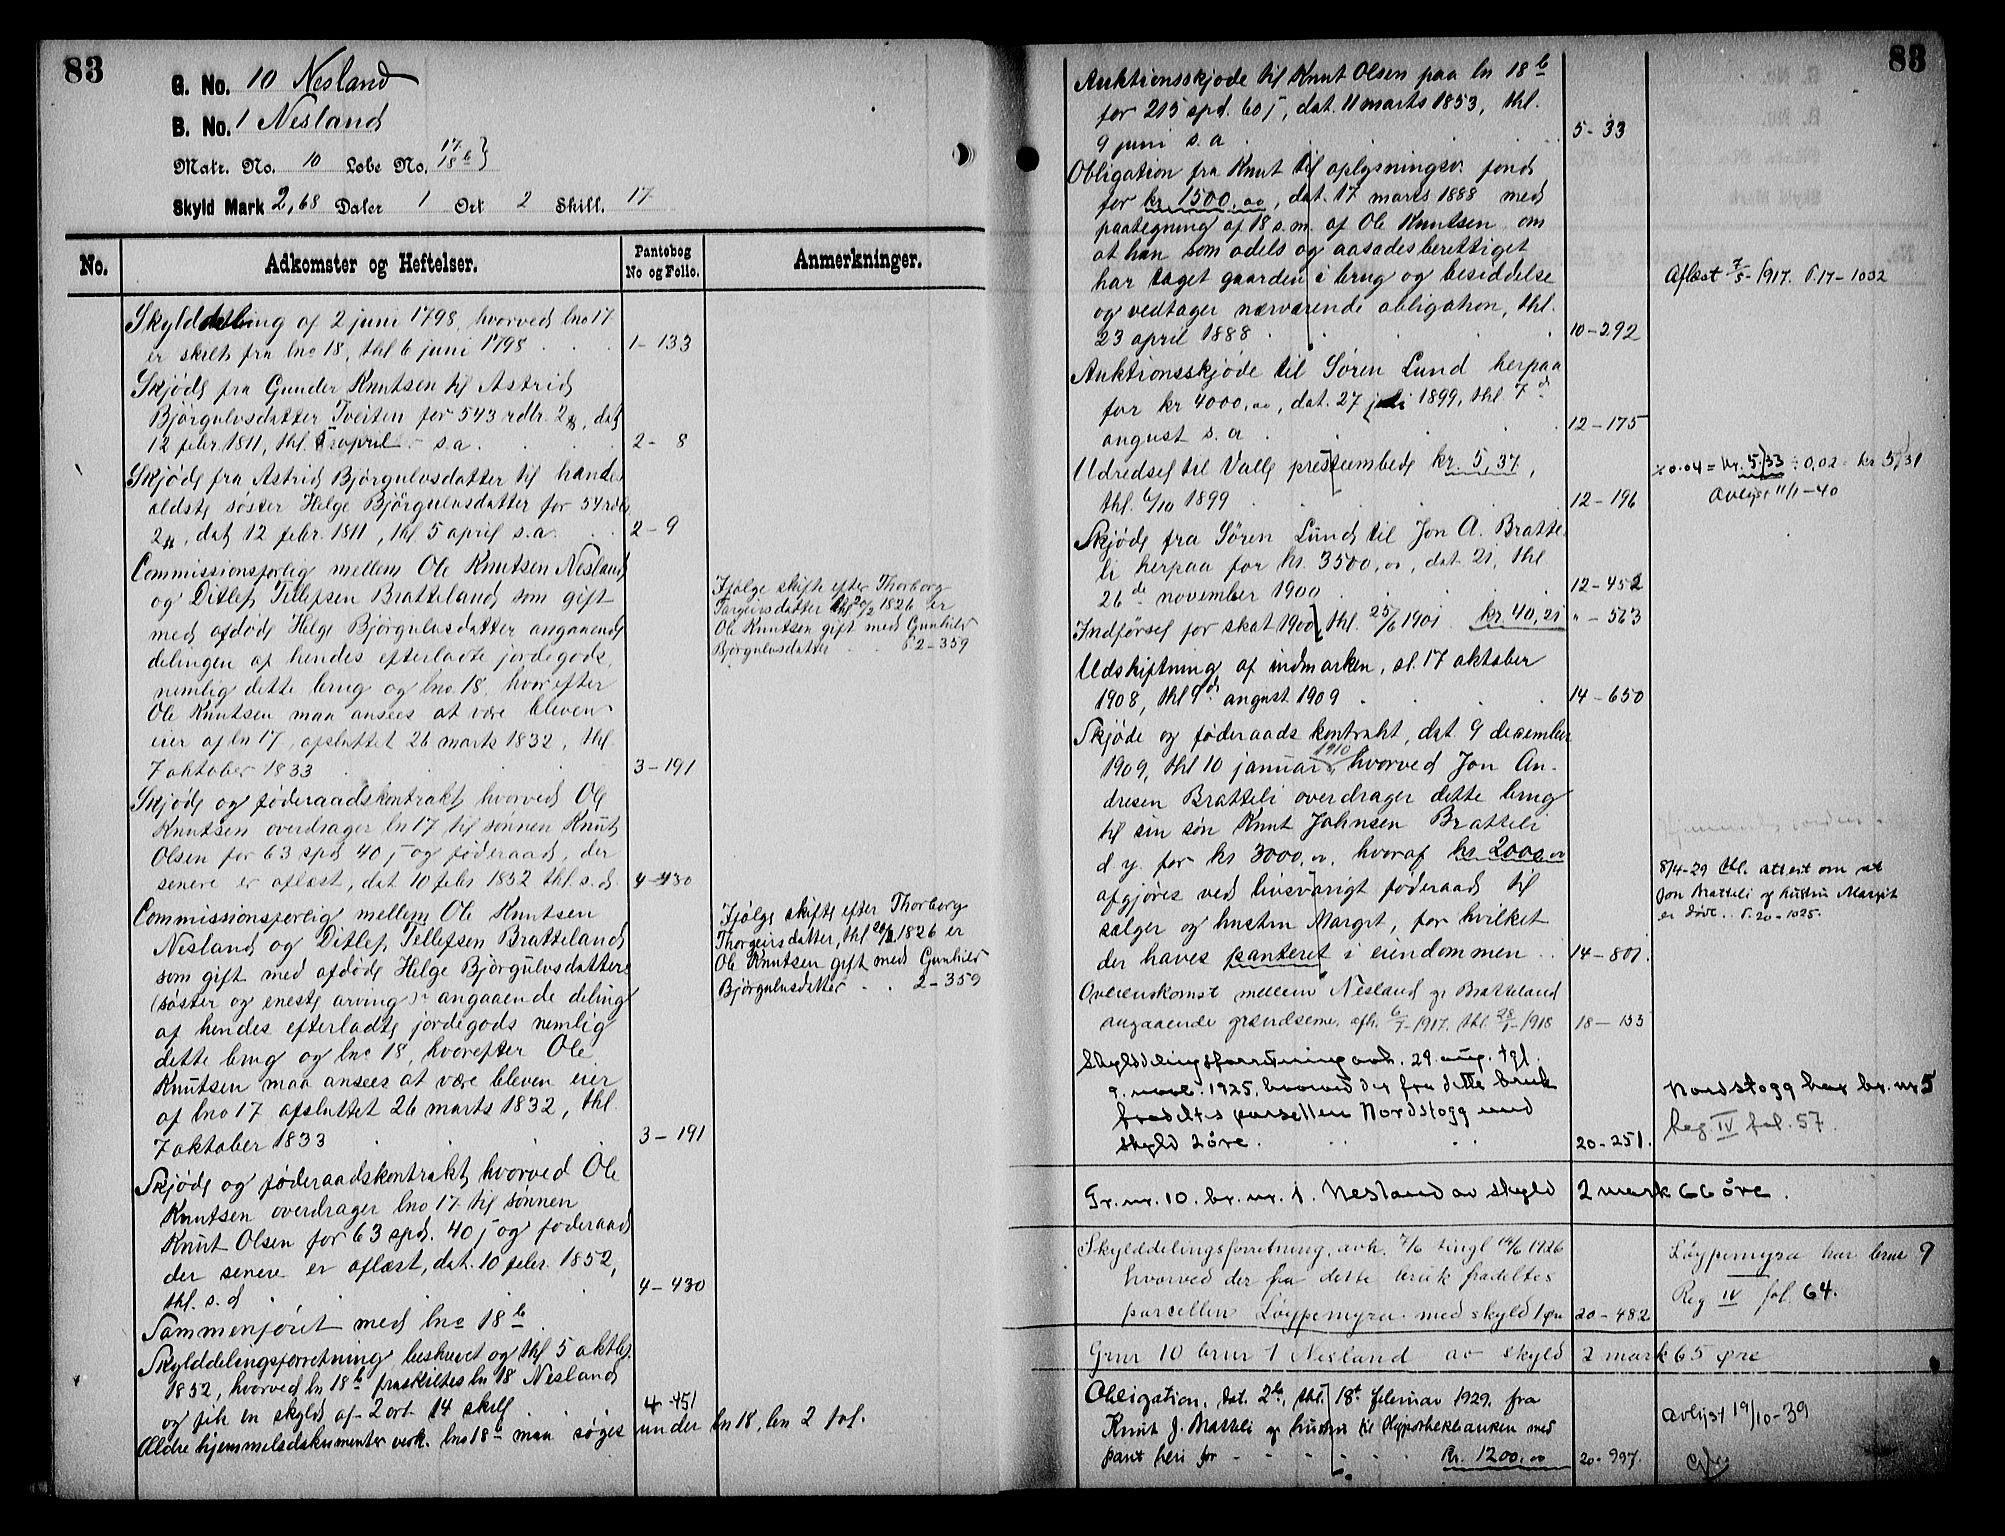 83
G. No. 10 Nesland
B. No. 1 Nesland
Matr. No. 10 Løbe No. 17 18 b}
Skyld Mark 2,68 Daler 1 Ort 2 Skill. 17
No.
Adkomster og Heftelser.
Pantebog No og Folio.
Anmerkninger.
Skylddeling af 2 juni 1798, hvorved lno 17
er skilt fra lno 18, thl 6 juni 1798 . . . 1-133
Skjøde fra Gunder Knutsen til Astrid
Bjørgulvsdatter Tveiten for 543 rdlr. 2 , dat
12 febr. 1811, thl. 5 april - s.a. . . 2- 8
Skjøde fra Astrid Bjørgulvsdatter til hendes
ældste søster Helge Bjørgulvsdatter for 54 rdlr
2 , dat 12 febr. 1811, thl 5 april s.a. . . 2-9
Commissionsforlig mellem Ole Knutsen Nesland
og Ditlef Tellefsen Bratteland som gift
med afdøde Helge Bjørgulvsdatter angaaende
delingen af hendes efterladte jordegods,
nemlig dette brug og lno 18, hvorefter
Ole Knutsen maa ansees at være bleven
eier af ln 17, afsluttet 26 marts 1832, thl
7 oktober 1833 . . . 3-191
Ifølge skifte efter Thorborg
Targeirsdatter thl 20/2 1826 er
Ole Knutsen gift med Gunhild
Bjørgulvsdatter . . P. 2-359
Skjøde og føderaadskontrakt hvorved Ole
Knutsen overdrager ln 17 til sønnen Knut
Olsen for 63 spd 40 ƒ og føderaad, der
senere er aflæst, dat 10 febr 1832 thl. s.d. 4-430
Commissionsforlig mellem Ole Knutsen
Nesland og Ditlef Tellefsen Bratteland
som gift med afdøde Helge Bjørgulvsdatter
(søster og eneste arving) angaaende deling
af hendes efterladte jordegods nemlig
dette brug og lno 18, hvorefter Ole
Knutsen maa ansees at være bleven eier
af lno 17 afsluttet 26 marts 1832, thl.
7 oktober 1833 . . . 3-191
Ifølge skifte efter Thorborg
Thorgeirsdatter, thl 20/2 1826 er
Ole Knutsen gift med Gunhild
Bjørgulvsdatter . . 2-359
Skjøde og føderaadskontrakt hvorved Ole
Knutsen overdrager lno 17 til sønnen
Knut Olsen for 63 spd. 40 ƒ og føderaad
der senere er aflæst, dat. 10 febr. 1852,
thl. s.d . . . 4-430
Sammenføiet med lno 18 b.
Skylddelingsforretning beskrevet og thl 5 oktbr.
1852, hvorved ln 18 b fraskiltes ln 18 Nesland
og fik en skyld af 2 ort 14 skill . 4-451
Ældre hjemmelsdokumenter vedk. lno 18 b maa søges under ln 18, bn 2 fol.
83
Auktionsskjøde til Knut Olsen paa ln 18 b
for 215 spd. 60 ƒ, dat. 11 marts 1853, thl.
9 juni s.a . . . 5-33
Obligation fra Knut til oplysningsv. fond
for kr. 1500,00, dat. 17 marts 1888 med
paategning af 18 s.m. af Ole Knutsen om
at han som odels og aasædesberettiget
har taget gaarden i brug og besiddelse
og vedtager nærværende obligation, thl.
23 april 1888 . . . 10-292
Aflæst 7/5-1917. P. 17-1032
Auktionsskjøde til Søren Lund herpaa
for kr 4000,00, dat. 27 juli 1899, thl. 7 d.
august s.a . . . 12-175
Udredsel til Valle præsteembede kr. 5,37,
thl. 6/10 1899 . . . 12-196
% 0.04 = kr. 5.33 ÷ 0,02 = kr 5,31
Avlyst 11/1-40
Skjøde fra Søren Lund til Jon A. Bratte-
li herpaa for kr. 3500,00, dat. 21, thl
26 de november 1900 . . 12-452
Indførsel for skat 1900, thl. 25/6 1901. kr 40,21 " - 563
Udskiftning af indmarken, sl. 17 oktober
1908, thl 9 de august 1909 . . . 14-650
Skjøde og føderaads kontrakt, dat. 9 december
1909, thl 10 januar 1910, hvorved Jon An-
dresen Bratteli overdrager dette brug
til sin søn Knut Johnsen Bratteli
d.y. for kr 3000,00, hvoraf kr 2000,00
afgjøres ved livsvarigt føderaad til
sælger og hustru Margit, for hvilket
der haves panteret i eiendommen . . 14-801
8/4-29 thl. attest om at
Jon Bratteli og hustru Margit
er døde. P. 20-1025.
Overenskomst mellem Nesland og Bratteland
angaaende grændserne, afh. 6/7-1917. thl. 28/1-1918 18-155
Skylddelingsforretning avh. 29 aug. tgl.
9. nov. 1925, hvorved der fra dette bruk
fradeltes parsellen Nordstogg med
skyld 2 øre. . . 20-251.
Nordstogg har br. nr 5
Reg IV fol. 57.
Gr. nr. 10. br. nr. 1. Nesland av skyld 2 mark 66 øre.
Skylddelingsforretning, avh. 7/6 tingl 14/6 1926
hvorved der fra dette bruk fradeltes
parcellen Løypemyra med skyld 1 øre 20-482
Løypemyra har brnr 9
Reg IV fol. 64.
Grnr 10 brnr 1 Nesland av skyld 2 mark 65 øre
Obligation, dat. 2., thl. 18. februar 1929, fra
Knut J. Bratteli og hustru til Hypothekbanken med
pant heri for - - - - Kr. 1200,00 20-997.
Avlyst 19/10-39